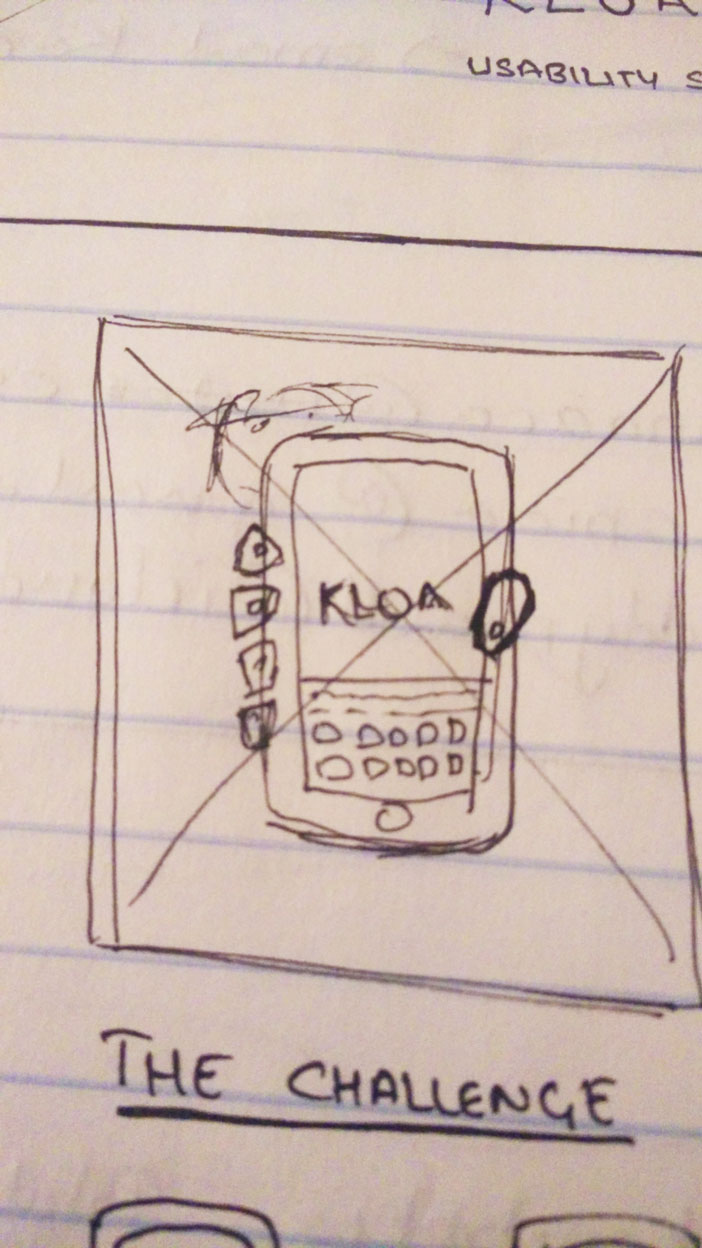 KLOA
USABILITY S
KLOA
THE CHALLENGE